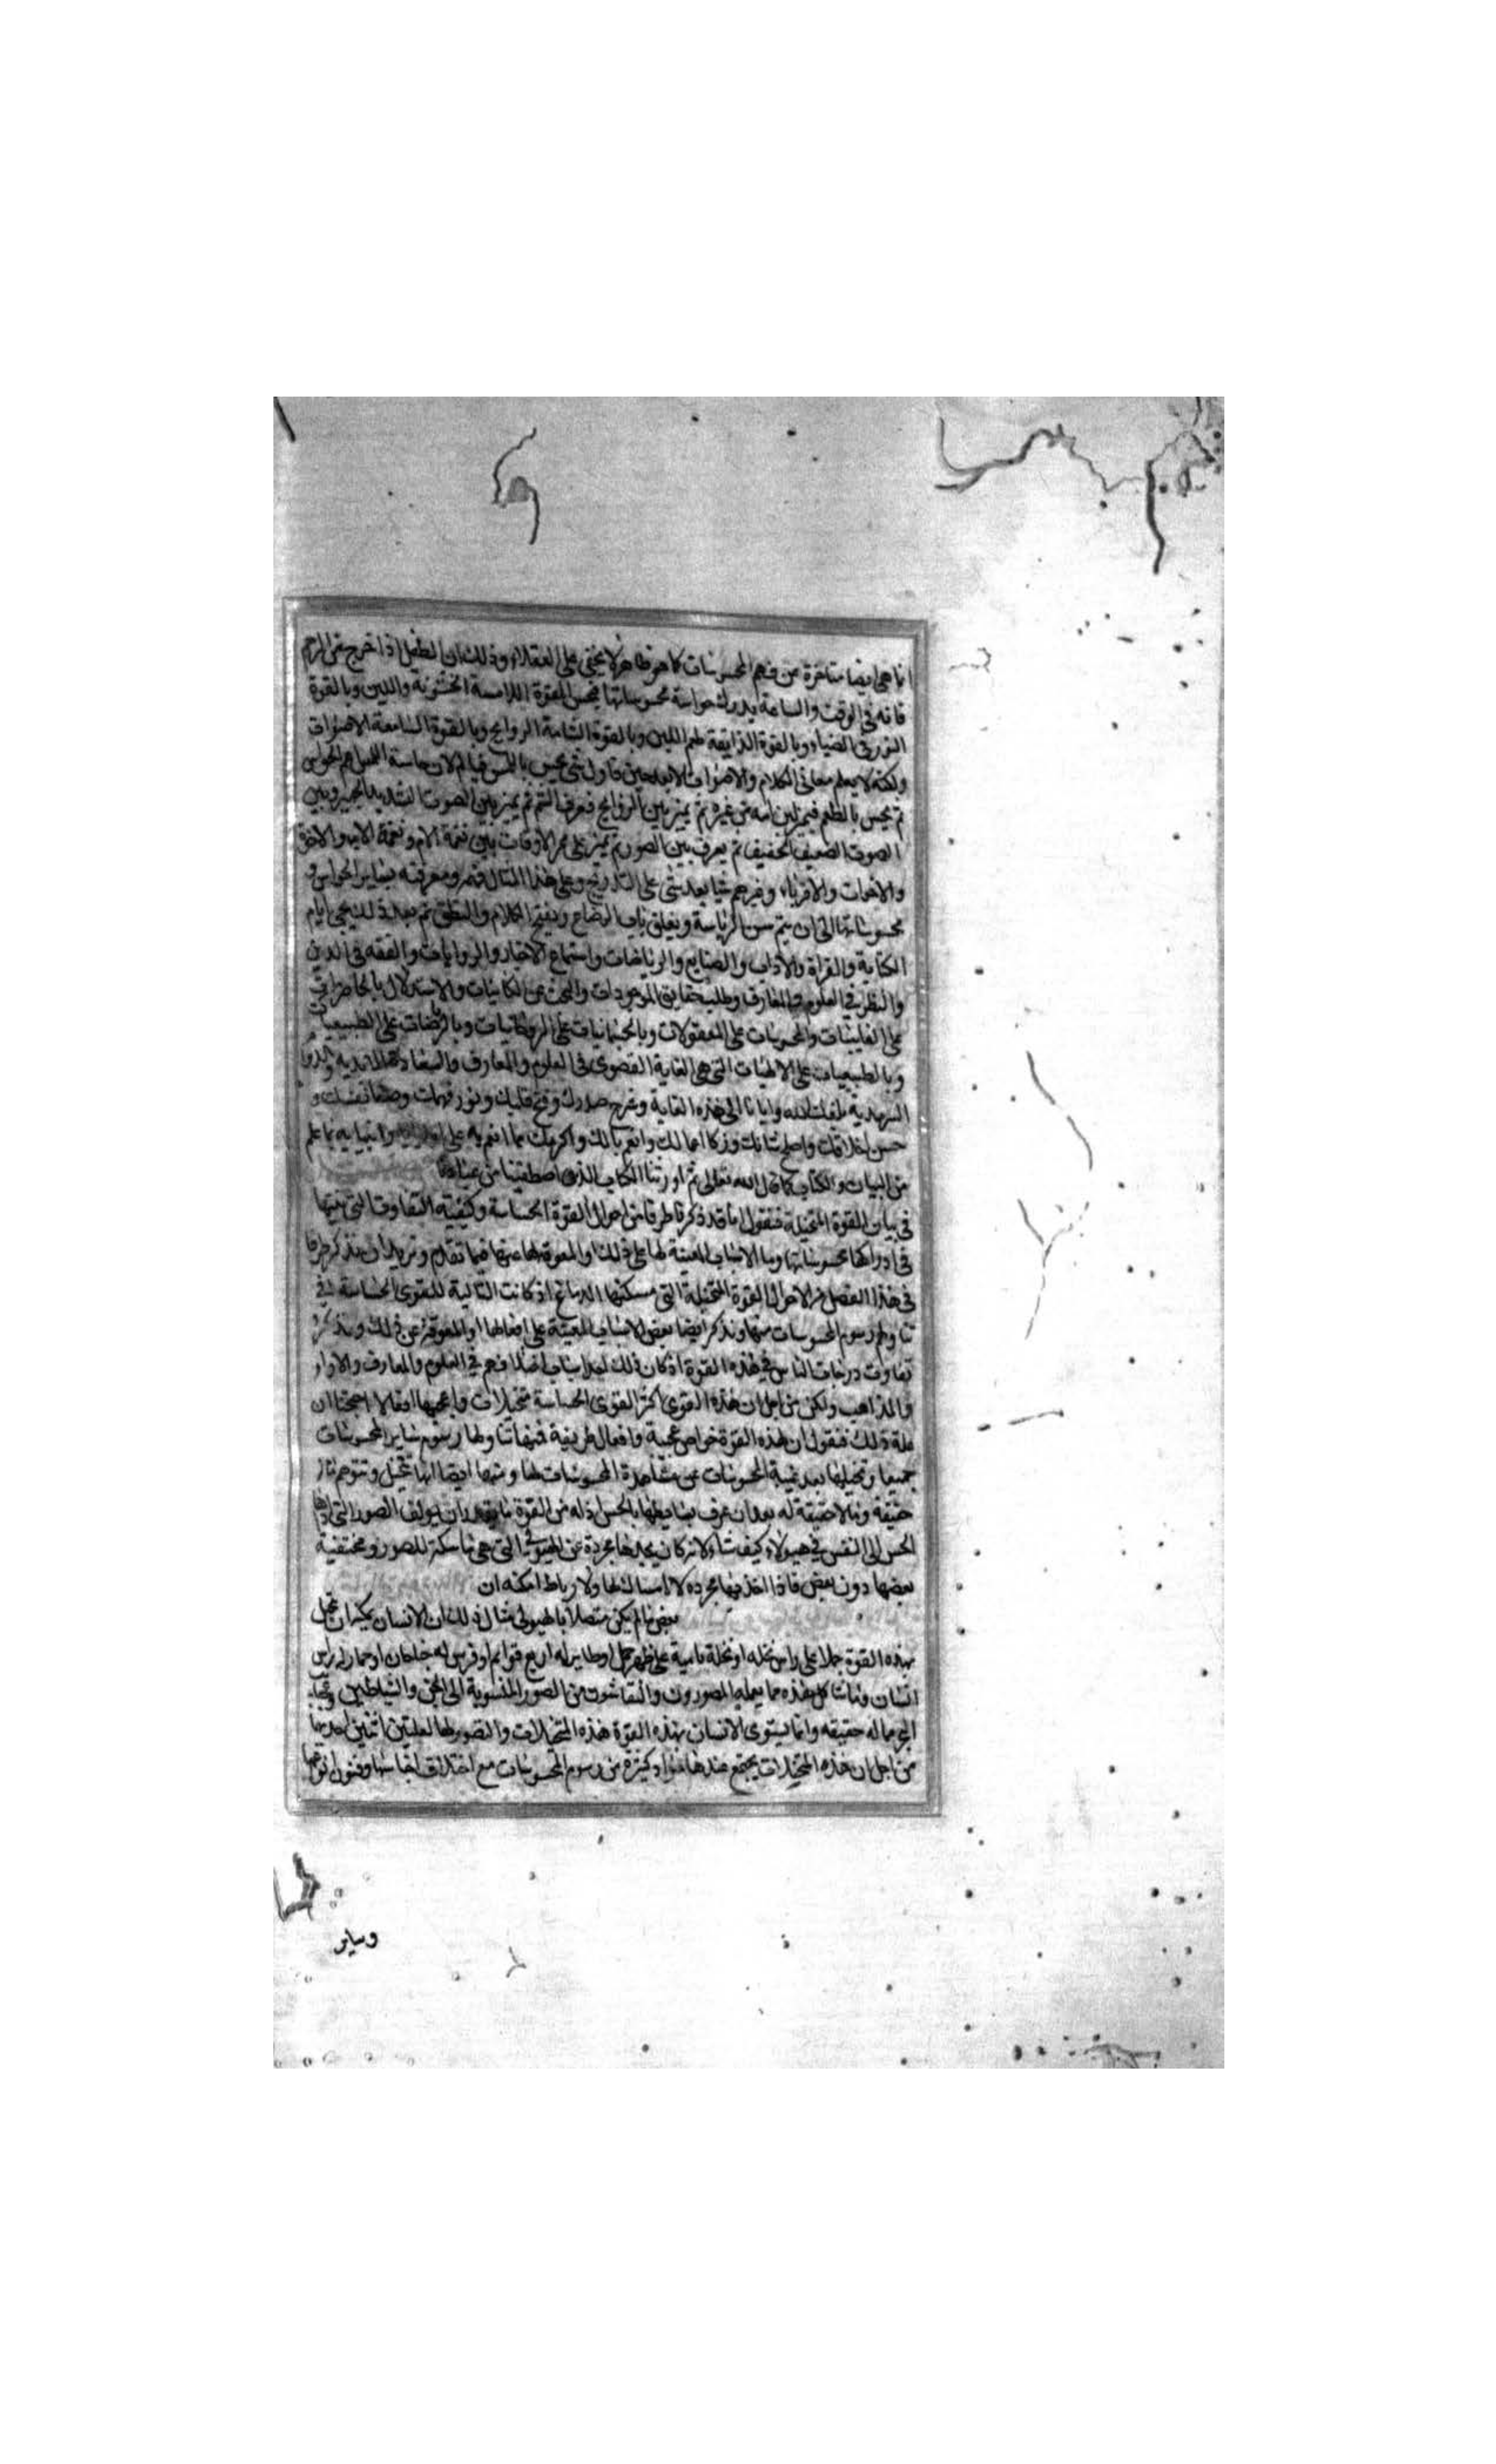 انما هى ايضا متاخرة عن فهم المحسوسات كما هو ظاهر لا يخفى على العقلاء وذلك ان الطفل اذا خرج من الرحم
فانه فى الوقت والساعة يدرك حواسه محسوساتها فيحس بالقوة اللامسة الخشونة واللين وبالقوة
الضياء وبالقوة الذايقة طعم اللبن وبالقوة الشامة الروايح وبالقوة السامعة الاصوات
ولكنه لا يعلم معانى الكلام والاصوات الا بعد حين فاول شى يحس باللمس لان حاسة اللمس اعم الحواس
ثم يحس بالطعم فيميز لبن امه من غيره ثم يميز بين الروايح فيعرف الشم ثم يميز بين الصوت الشديد الجهير وبين
الصوت الضعيف الخفيف ثم يعرف بين الصور ثم يميز على ممر الاوقات بين نغمة الام ونغمة الاب والاخوة
والاخوات والاقرباء وغيرهم شيا بعد شى على التدريج وعلى هذا المثال فهمه ومعرفته بساير الحواس و
محسوساتها الى ان يتم سن التربية ويغلق باب الرضاع ويفتح الكلام والنطق ثم بعد ذلك يجى ايام
الكتابة والقراة والاداب والصنايع والرياضات واستماع الاخبار والروايات والفقه فى الدين
والنظر فى العلوم والمعارف وطلب حقايق الموجودات والبحث عن الكاينات والاستدلال بالحاضرات
على الغايبات والمحسوسات على المعقولات وبالجسمانيات على الروحانيات وبالرياضات على الطبيعيات
وبالطبيعيات على الالهيات التى هى الغاية القصوى فى العلوم والمعارف والسعادة الابدية والدوام
السرمدية بلغك الله وايانا الى هذه الغاية وشرح صدرك وفتح قلبك ونور فهمك وصفا نفسك و
حسن اخلاقك واصلح شانك وزكا اعمالك وانعم بالك واكرمك بما انعم به على اوليايه وانبيايه بما علم
من البيات والكتاب كما قال الله تعالى ثم اورثنا الكتاب الذين اصطفينا من عبادنا
فى بيان القوة المتخيلة فنقول انا قد ذكرنا طرفا من احوال القوة الحساسة وكيفية التفاوت التى بينها
فى ادراكها محسوساتها وبالاسباب المعينة لها على ذلك والمعوقة لها عنها فيما تقدم ونريد ان نذكر طرفا
فى هذا الفصل من احوال القوة المتخيلة التى مسكنها الدماغ اذ كانت التالية للقوى الحساسة فى
تناولها رسوم المحسوسات منها ونذكر ايضا بعض الاسباب المعينة على افعالها او المعوقة عن ذلك ونذكر
تفاوت درجات الناس فى هذه القوة اذ كان ذلك احد اسباب اختلافهم فى العلوم والمعارف والاراء
والمذاهب ولكن من اجل ان هذه القوى اكثر القوى الحساسة متخيلات واعجبها افعالا احتجنا ان
علة ذلك فنقول ان لهذه القوة خواص عجيبة وافعال طريفة فمنها تناولها رسوم ساير المحسوسات
جميعا وتخيلها بعد غيبة المحسوسات عن مشاهدة المحسوسات لها ومنها ايضا انها تتخيل وتتوهم ما له
حقيقة وما لا حقيقة له بعد ان عرف بسايطها بالحس له من القوة ما يقدر ان يولف الصور التى اداها
الحس الى النفس فى هيولاه كيف شاء ولانه كان يجدها مجردة عن الهيولى التى هى ماسكة للصور
بعضها دون بعض فاذا اخذ فيها مجردة لا امساك لها ولا رباط امكنه ان
بعض ما لم يكن متصلا بالهيولى مثال ذلك ان الانسان يمكنه ان يتخيل
بهذه القوة جملا على راس نخلة او نخلة نابتة على ظهر جمل او طايرا له اربع قوايم او فرس له جناحان او حمار له راس
انسان وما شاكل هذه مما يعمله المصورون والنقاشون من الصور المنسوبة الى الجن والشياطين وعجايب
البحر مما له حقيقه وانما يستوى للانسان بهذه القوة هذه المتخيلات والتصور لها لعلتين اثنين احدهما
من اجل ان هذه المتخيلات يجتمع عندها كثيرة من رسوم المحسوسات مع اختلاف اجناسها وفنون انواعها
وساير